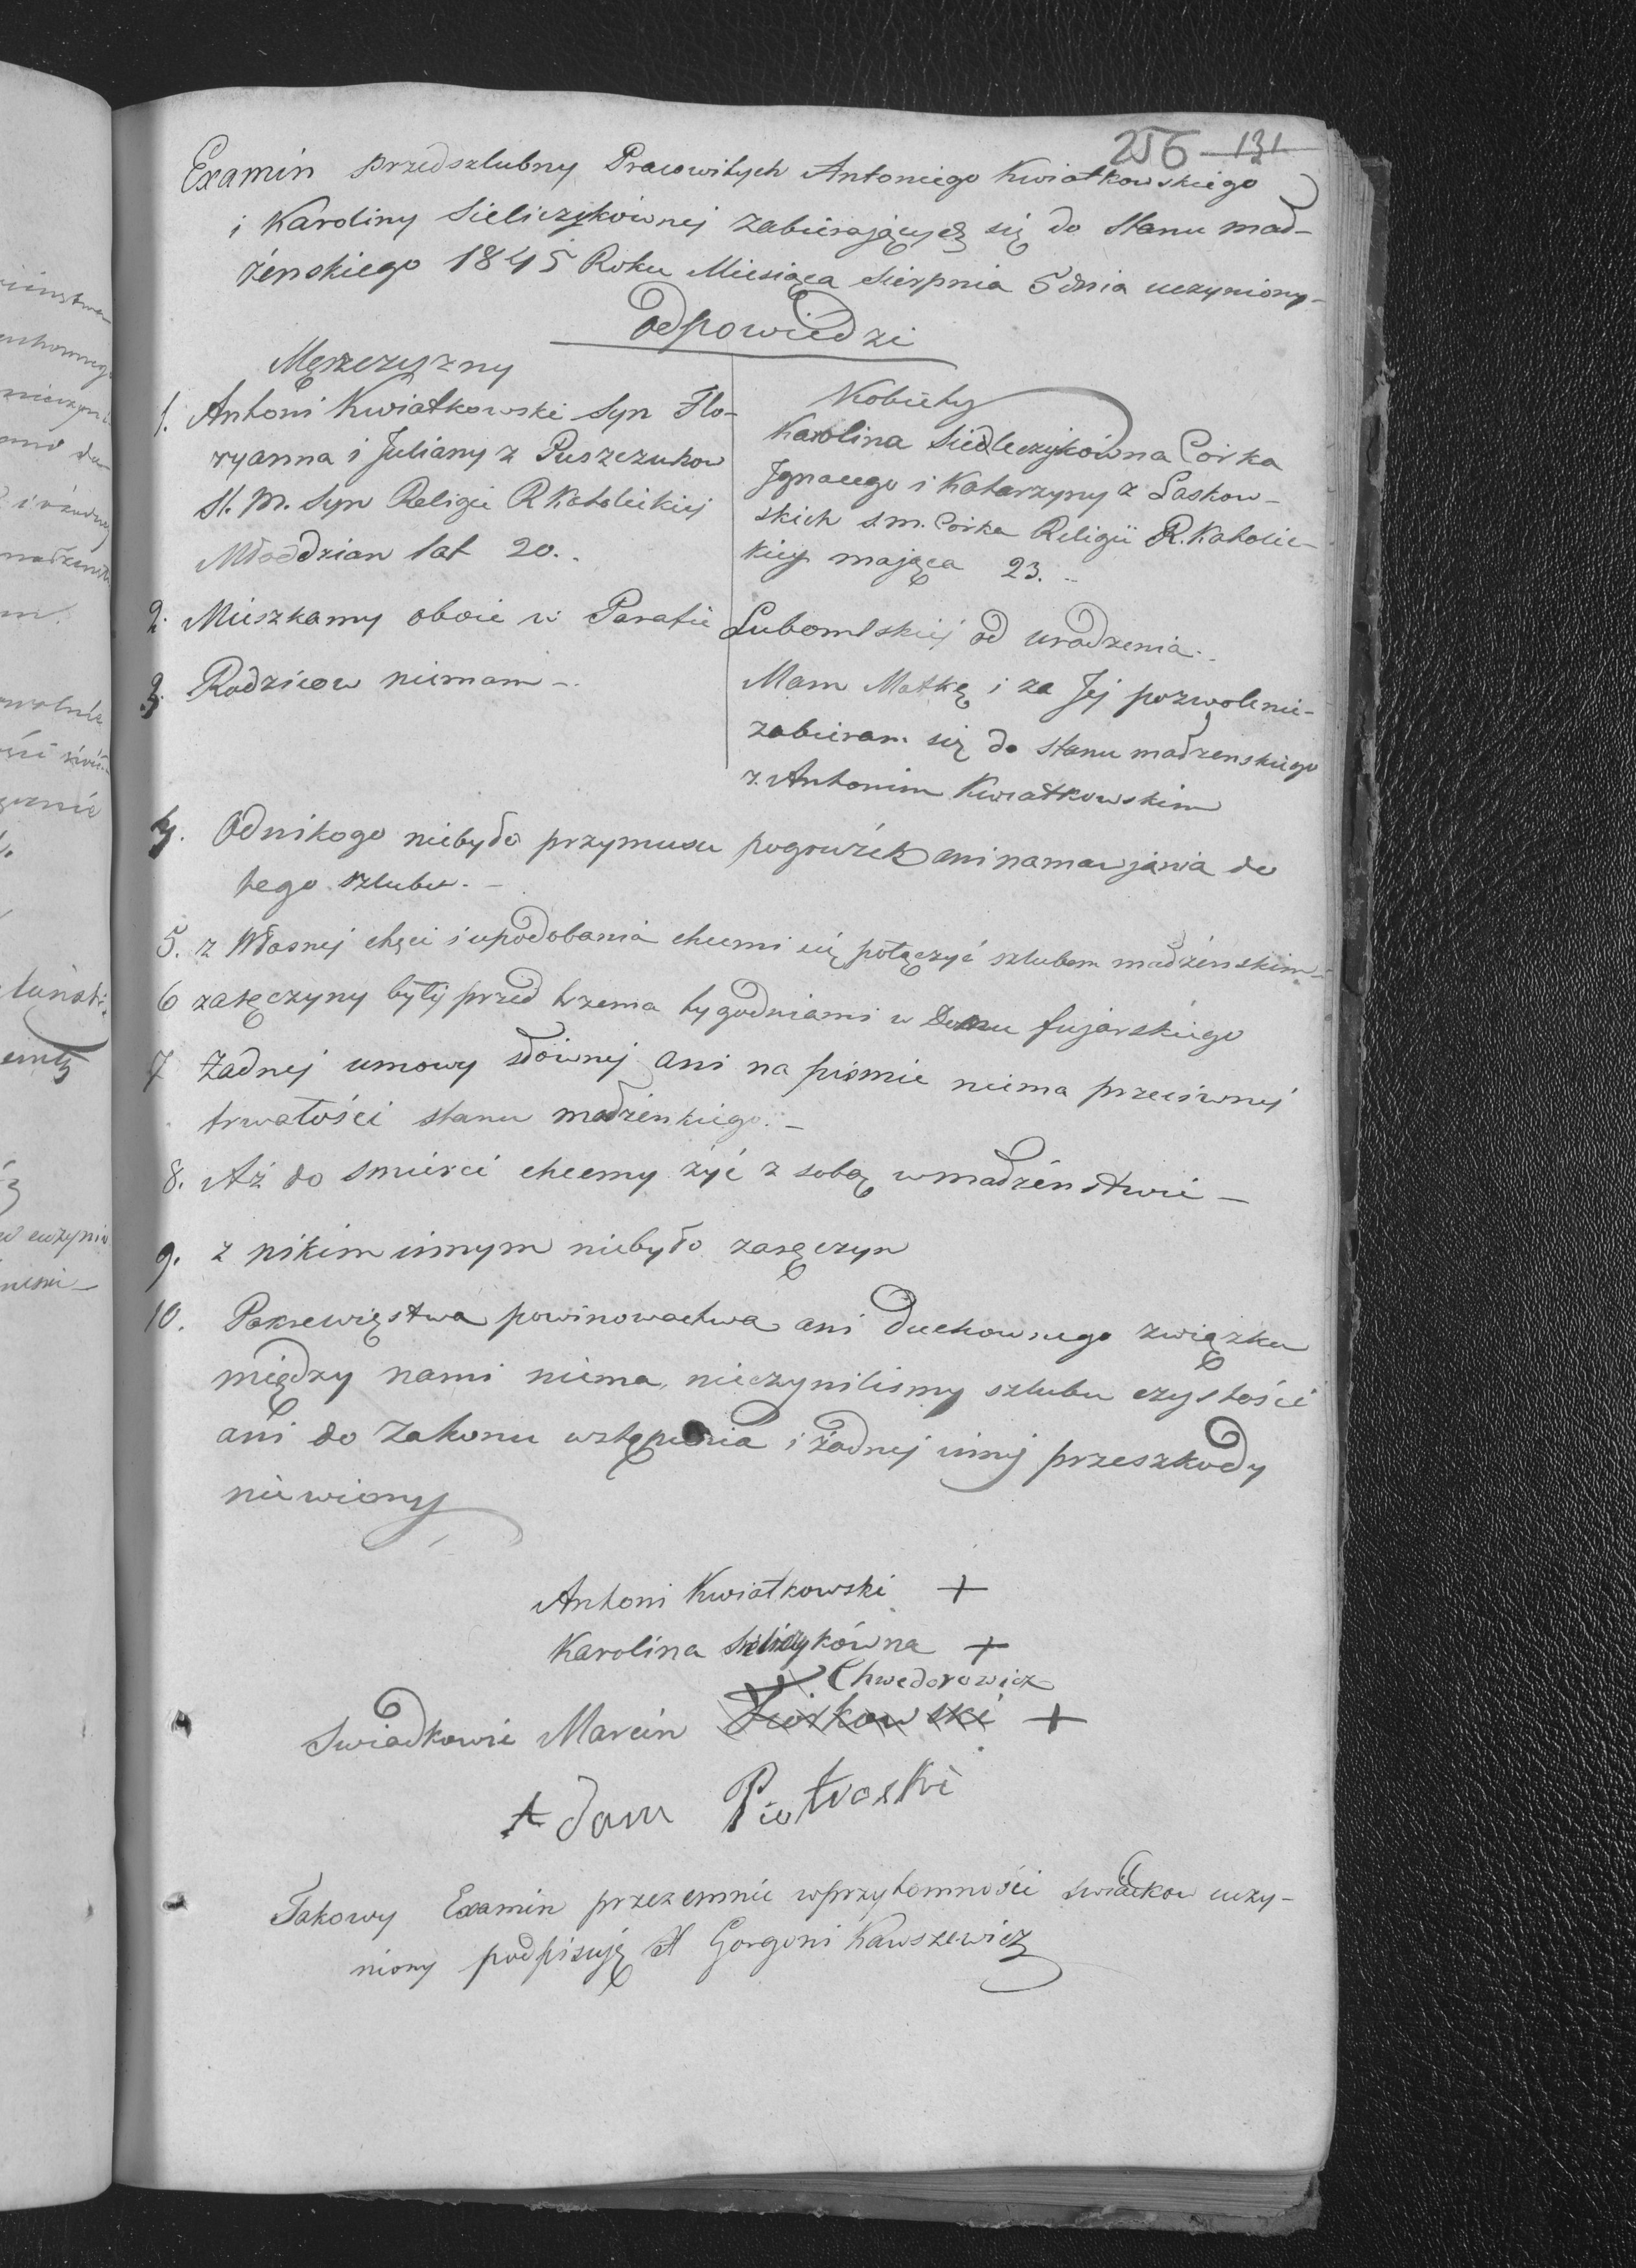 256 131
Examin przedszlubny Pracowitych Antoniego Kwiatkowskiego
i Karoliny Sieliczykównej zabierających się do stanu mał-
żenskiego 1845 Roku Miesiąca Sierpnia 5 dnia uczyniony-
Odpowiedzi
Męszczyzny
1. Antoni Kwiatkowski Syn Flo-
ryanna i Juliany z Puszczukow
śl. m. Syn Religii R Katolickiej
Młodzian lat 20..
Kobiety
Karolina Siedleczykówna Córka
Jgnacego i Katarzyny z Laskow-
skich s m. Córka Religii R. Katolic-
kiey mająca 23...
2. Mieszkamy oboie w Parafii Lubomlskiej od urodzenia..
3. Rodziców niemam -.
Mam Matkę i za Jej pozwolenie-
zabieram się do stanu małżenskiego
z Antonim Kwiatkowskim
4. Odnikogo niebyło przymusu pogrużek ani namawjania do
tego szlubu. -
5. z Własnej chęci i upodobania chcemi się połączyć szlubem małżeńskim-
6 zaręczyny były przed trzema tygodniami w Domu fujarskiego
7 Żadnej umowy słownej ani na pismie niema przeciwnej
trwałości stanu małżenkiego. -
8. Aż do smierci chcemy żyć z sobą w małżeństwie -
9. z nikim innym niebyło zaręczyn
10. Pokrewięstwa powinowactwa ani duchownego związku
między nami niema, nieczynilismy szlubu czystości
ani do Zakonu wstępienia i żadnej innej przeszkody
nie wiemy
Antoni Kwiatkowski +
Karolina Sieliczykówna +
Chwedorowicz
Swiadkowie Marcin +
Adam Piotroski
Takowy Examin przezemnie w przytomności swiadkow uczy-
niony podpisuję X Gorgoni Kawszewicz